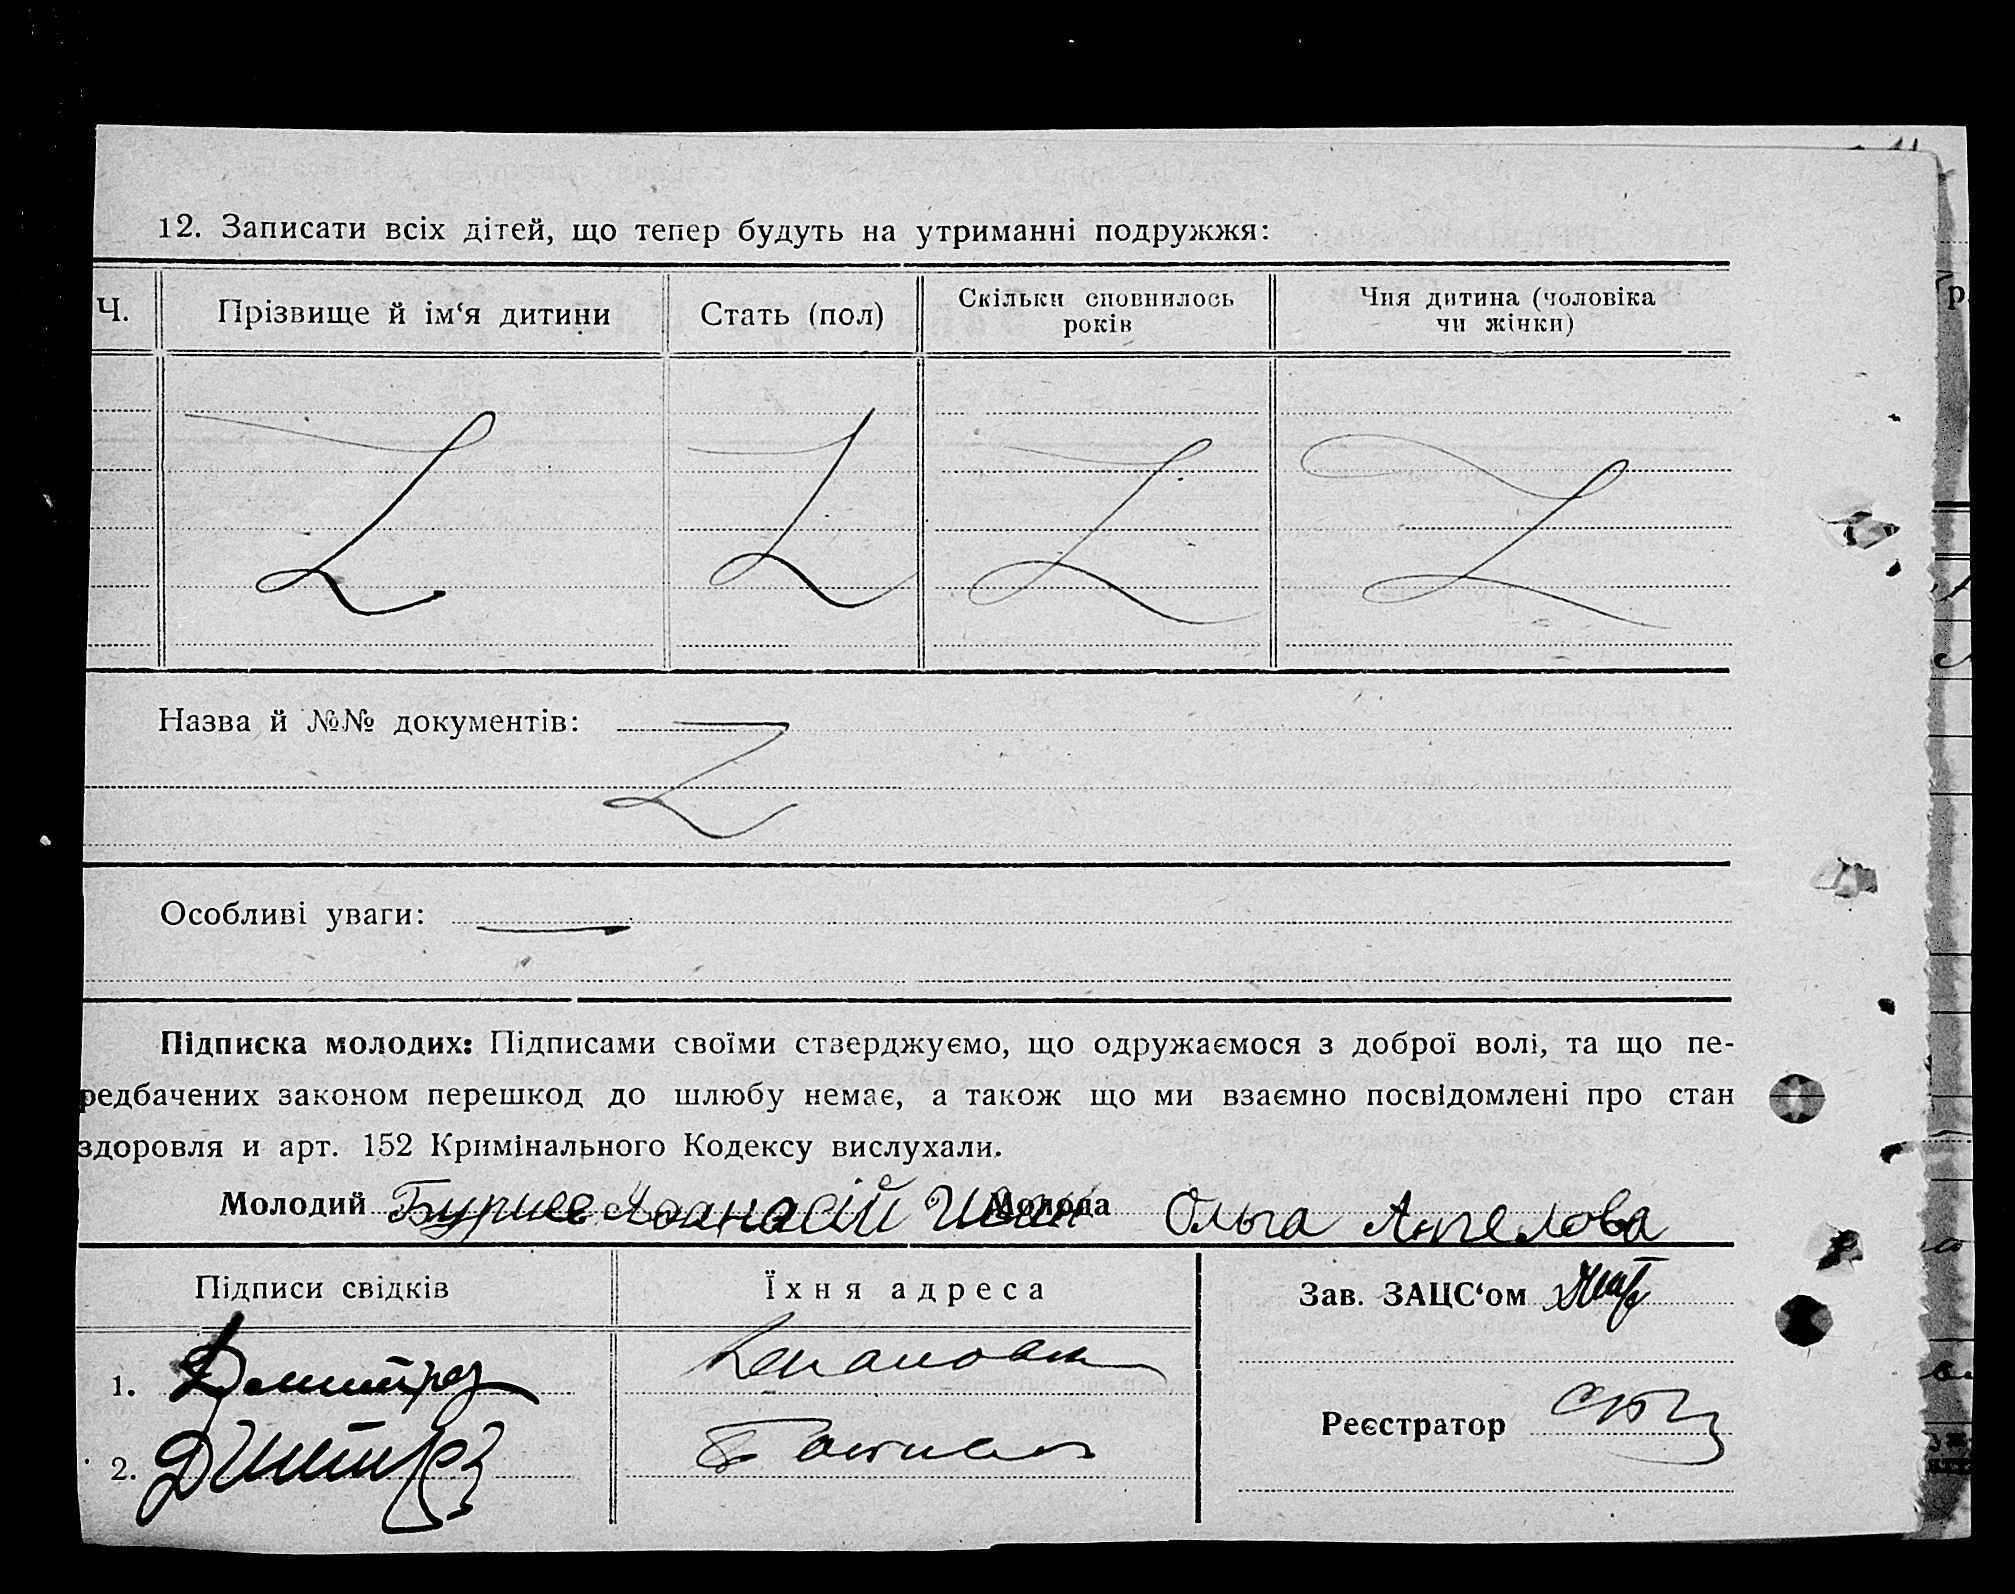 12. Записати всіх дітей, що тепер будуть на утриманні подружжя:
Ч. Прізвище й ім‘я дитини Стать (пол) Скільки сповнилось років Чия дитина (чоловіка чи жінки)
Назва й №№ документів:
Особливі уваги:
Підписка молодих: Підписами своїми стверджуємо, що одружаємося з доброї волі, та що пе-
редбачених законом перешкод до шлюбу немає, а також що ми взаємно посвідомлені про стан
здоровля и арт. 152 Кримінального Кодексу вислухали.
Молодий Афанасій Молода Ольга Ангелова
Підписи свідків Їхня адреса Зав. ЗАЦС‘ом
1.
Реєстратор
2.